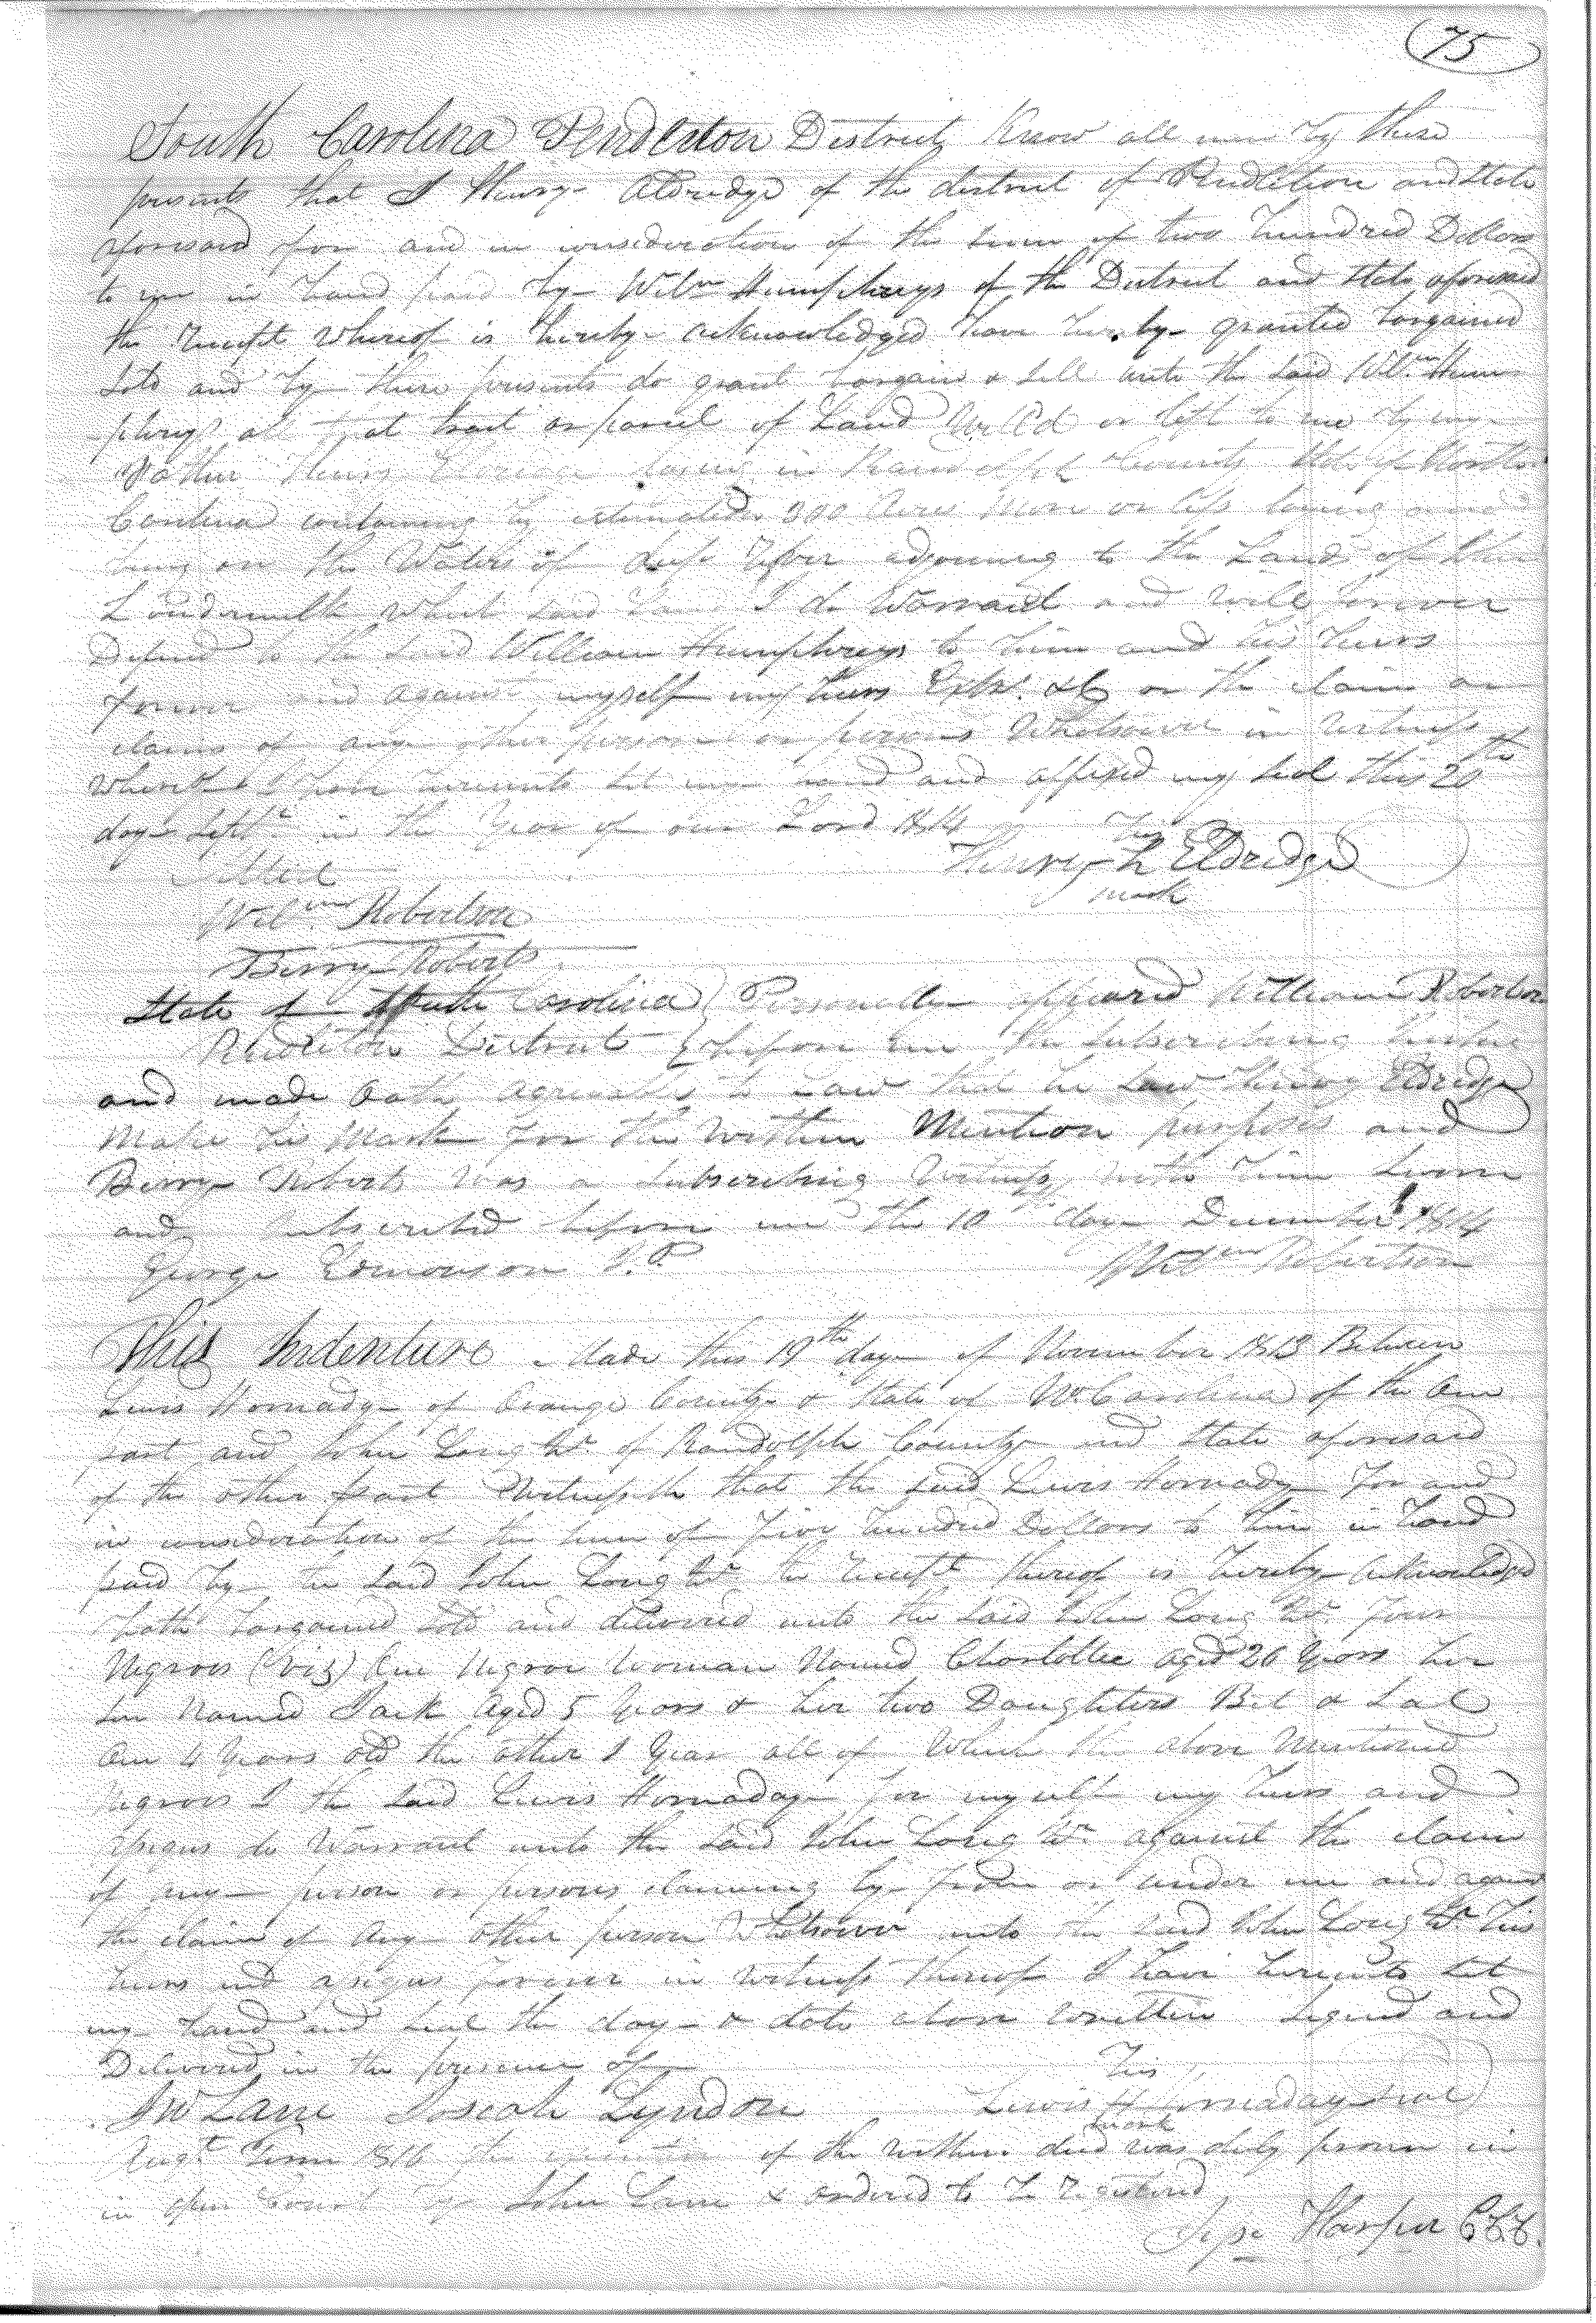 75
South Carolina Pendleton District Know all men by these
presents that I Henry Aldredge of the district of Pendleton and State
aforesaid for and in consideration of the sum of two hundred Dollars
to me in hand paid by Wilm Humphreys of the District and State aforesaid
the Receipt whereof is hereby acknowledged have hereby granted bargained
sold and by these presents do grant bargain & sell unto the said Wilm. Hum
phreys all that tract or parcel of Land Willed or left to me by my
Father Henry Eldridge laying in Randolph County State of North
Carolina containing by estimation 300 Acres More or less laying and
being on the Waters of deep River adjoining to the Lands of
which said Land I do Warrant and will forever
Defend to the said William Humphreys to him and his heirs
forever and against myself my heirs Extrs. &C or the claim or
claims of any other person or persons Whatsoever in witness
whereof I have hereunto set my hand and affixed my seal this 20th
day Septr in the Year of our Lord 1814
Attest his
Henry h Eldridge
mark
Wilm. Robertson
Berry Roberts
State of South Carolina } Personally appeared William Robertson
Pendleton District } before me the subscribing Justice
and made oath agreeable to Law that he saw Henry Eldridge
Make his Mark for the within Mention purposes and
Berry Roberts was a subscribing Witness with him sworn
and subscribed before me the 10th day December 1814
George Edmonson J.P. Wilm Robertson
This Indenture Made this 19th day of November 1813 Between
Lewis Hornaday of Orange County & State of No Carolina of the One
part and John Long Sr of Randolph County and State aforesaid
of the other part Witnesseth that the said Lewis Hornaday for and
in consideration of the sum of five hundred Dollars to him in hand
paid by the said John Long Sr the receipt thereof is hereby acknowledged
hath bargained sold and delivered unto the said John Long Sr. four
Negroes (Viz) One Negroe Woman Named Charlottee aged 26 Years her
son Named Jack Aged 5 Years & her two Daughters Bet & Sal
One 4 Years old the other 1 Year all of Which the above Mentioned
Negroes I the said Lewis Hornaday for myself my heirs and
assigns do Warrant unto the said John Long Sr against the claim
of any person or persons claiming by from or under me and against
the claim of any other person Whatsoever unto the said John Long Sr his
heirs and assigns forever in witness thereof I have hereunto set
my hand and seal the day & date above written Signed and
Delivered in the presence of his
Jno Lane Josiah Lyndon Lewis H Hornaday seal
mark
Augt Term 1816 the execution of the within deed was duly proven in
in open Court by John Lane & ordered to be registered
Jesse Harper C.C.C.